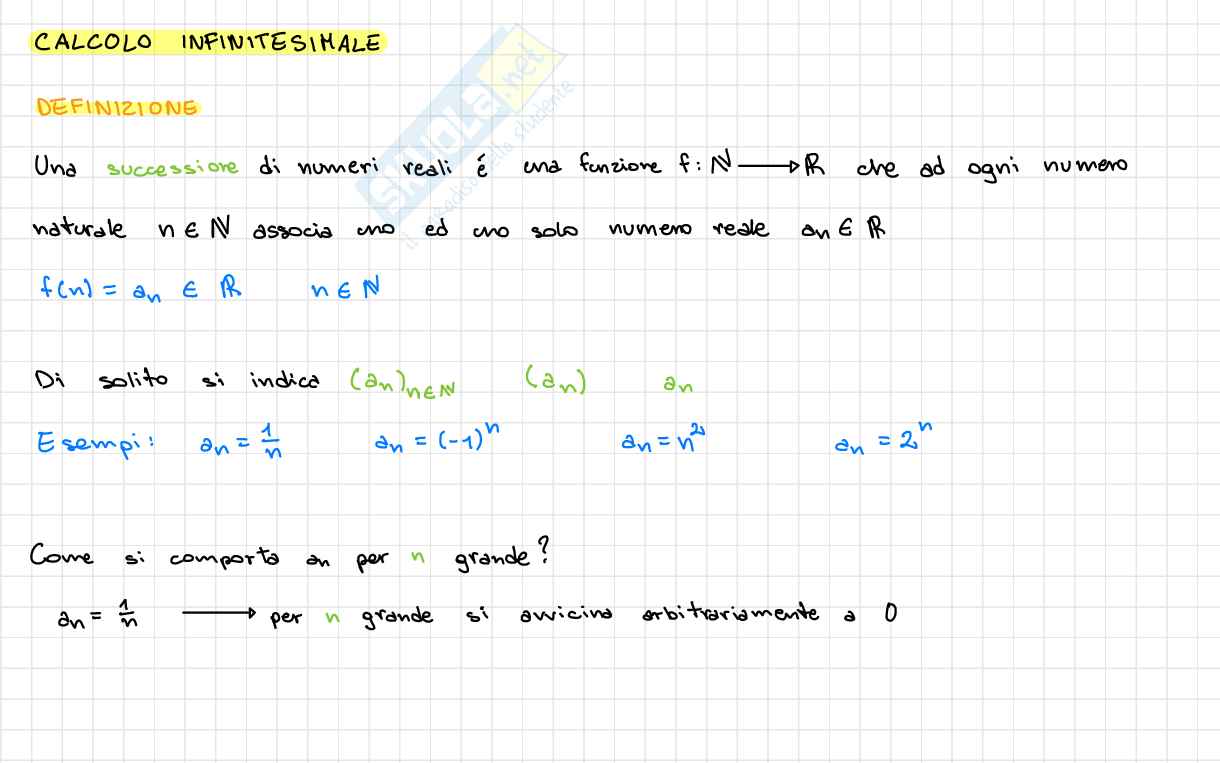 CALCOLO INFINITESIMALE
DEFINIZIONE
Una successione di numeri reali é una funzione f: ℕ ⟶ ℝ che ad ogni numero
naturale n ∈ ℕ associa uno ed uno solo numero reale aₙ ∈ ℝ
f(n) = aₙ ∈ ℝ n ∈ ℕ
Di solito si indica (aₙ)ₙ∈ℕ (aₙ) aₙ
Esempi: aₙ = 1/n aₙ = (-1)ⁿ aₙ = n² aₙ = 2ⁿ
Come si comporta an per n grande?
aₙ = 1/n ⟶ per n grande si avvicina arbitrariamente a 0
SKUOLA.net
il paradiso dello studente